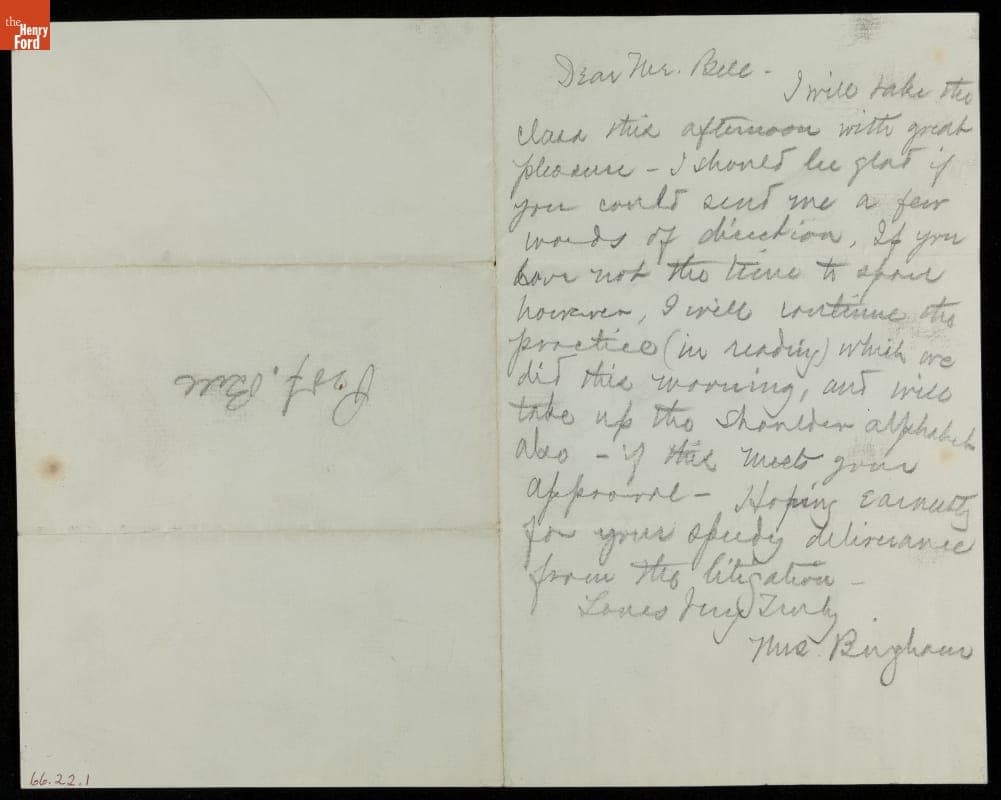 the
Henry
Ford
Prof. Bell
66.22.1
Dear Mr. Bell -
I will take the
class this afternoon with great
pleasure - I should be glad if
you could send me a few
words of direction. If you
have not the time to spare
however, I will continue the
practice (in reading) which we
did this morning, and will
take up the shoulder alphabet
also - if this meets your
approval - Hoping earnestly
for your speedy deliverance
from the litigation -
Yours Very Truly
Mrs. Bingham